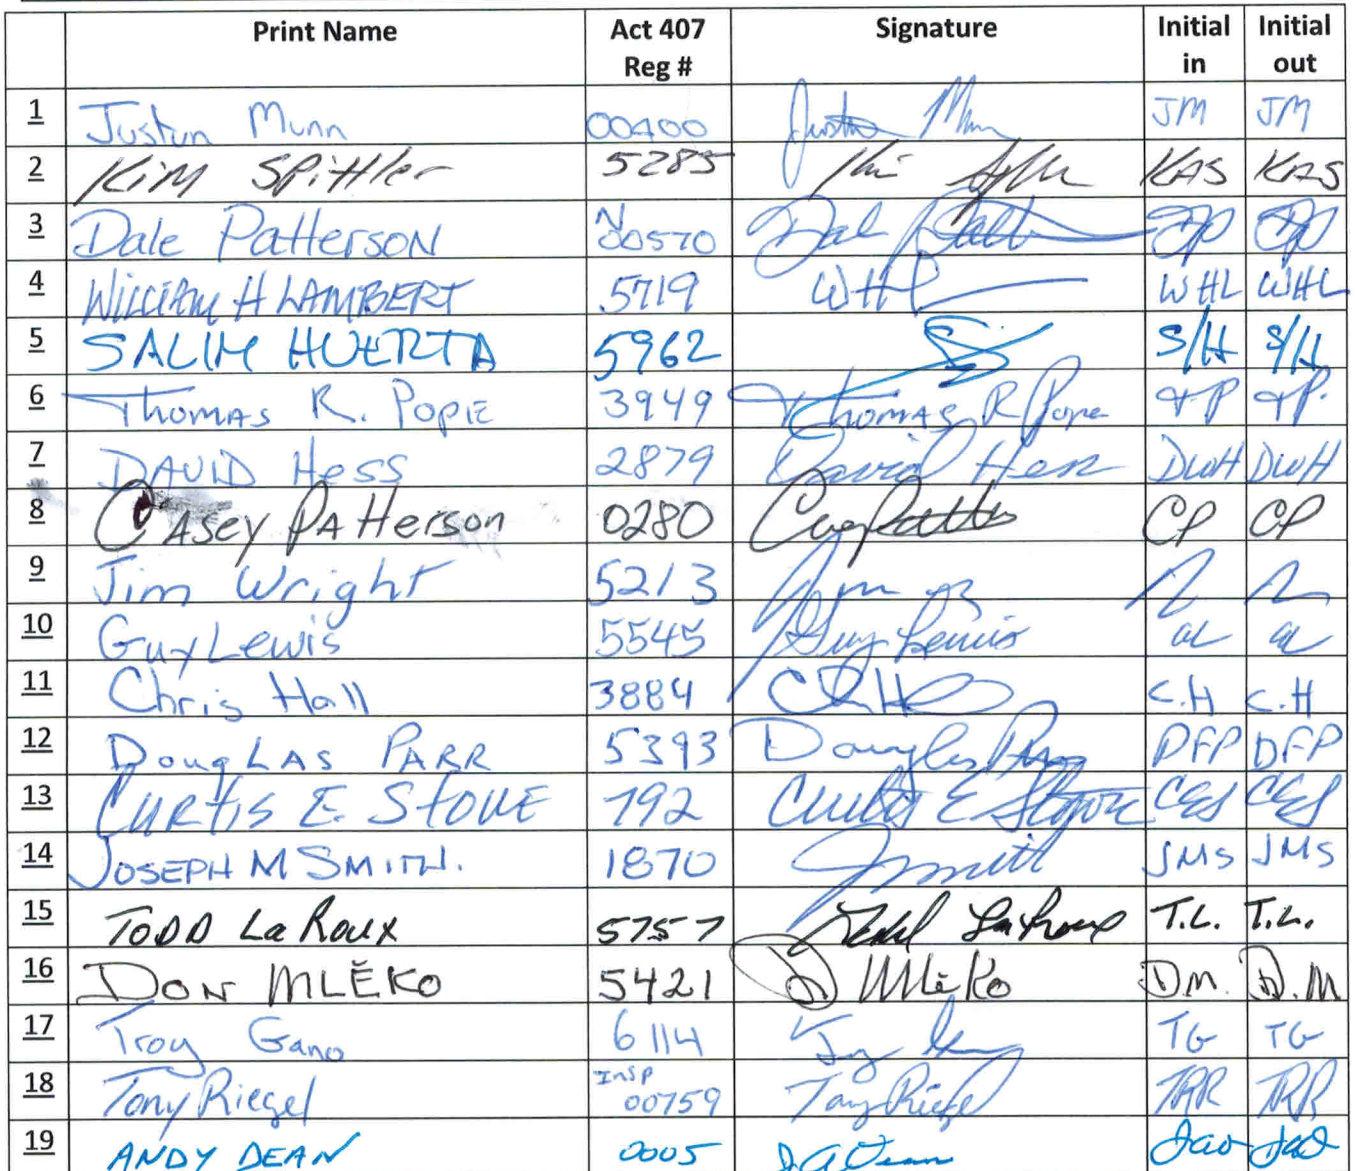 Print Name Act 407 Reg # Signature Initial in Initial out
1 Justin Munn 00400 Justin Munn JM JM
2 Kim Spittler 5285 KAS KAS
3 Dale Patterson N 00570 Dale Patt DP DP
4 William H Lambert 5719 WHL WHL WHL
5 SALIM HUERTA 5962 S/H S/H
6 Thomas R. Pope 3949 Thomas R Pope TP TP.
7 DAVID Hess 2879 David Hess DWH DWH
8 Casey Patterson 0280 CP CP
9 Jim Wright 5213
10 Guy Lewis 5545 Guy Lewis GL GL
11 Chris Hall 3884 C.H C.H
12 Douglas Parr 5393 Douglas Parr DFP DFP
13 Curtis E. Stoue 792 Curtis E Stoue CES CES
14 Joseph M Smith. 1870 JMSmith JMS JMS
15 Todd LaRoux 5757 Todd LaRoux T.L. T.L.
16 Don MLĚKO 5421 D MLěKo DM. D.M
17 Troy Gano 6114 Troy TG TG
18 Tony Riegel Insp 00759 Tony Riegel TRR TRR
19 ANDY DEAN 0005 J A Dean JAD JAD